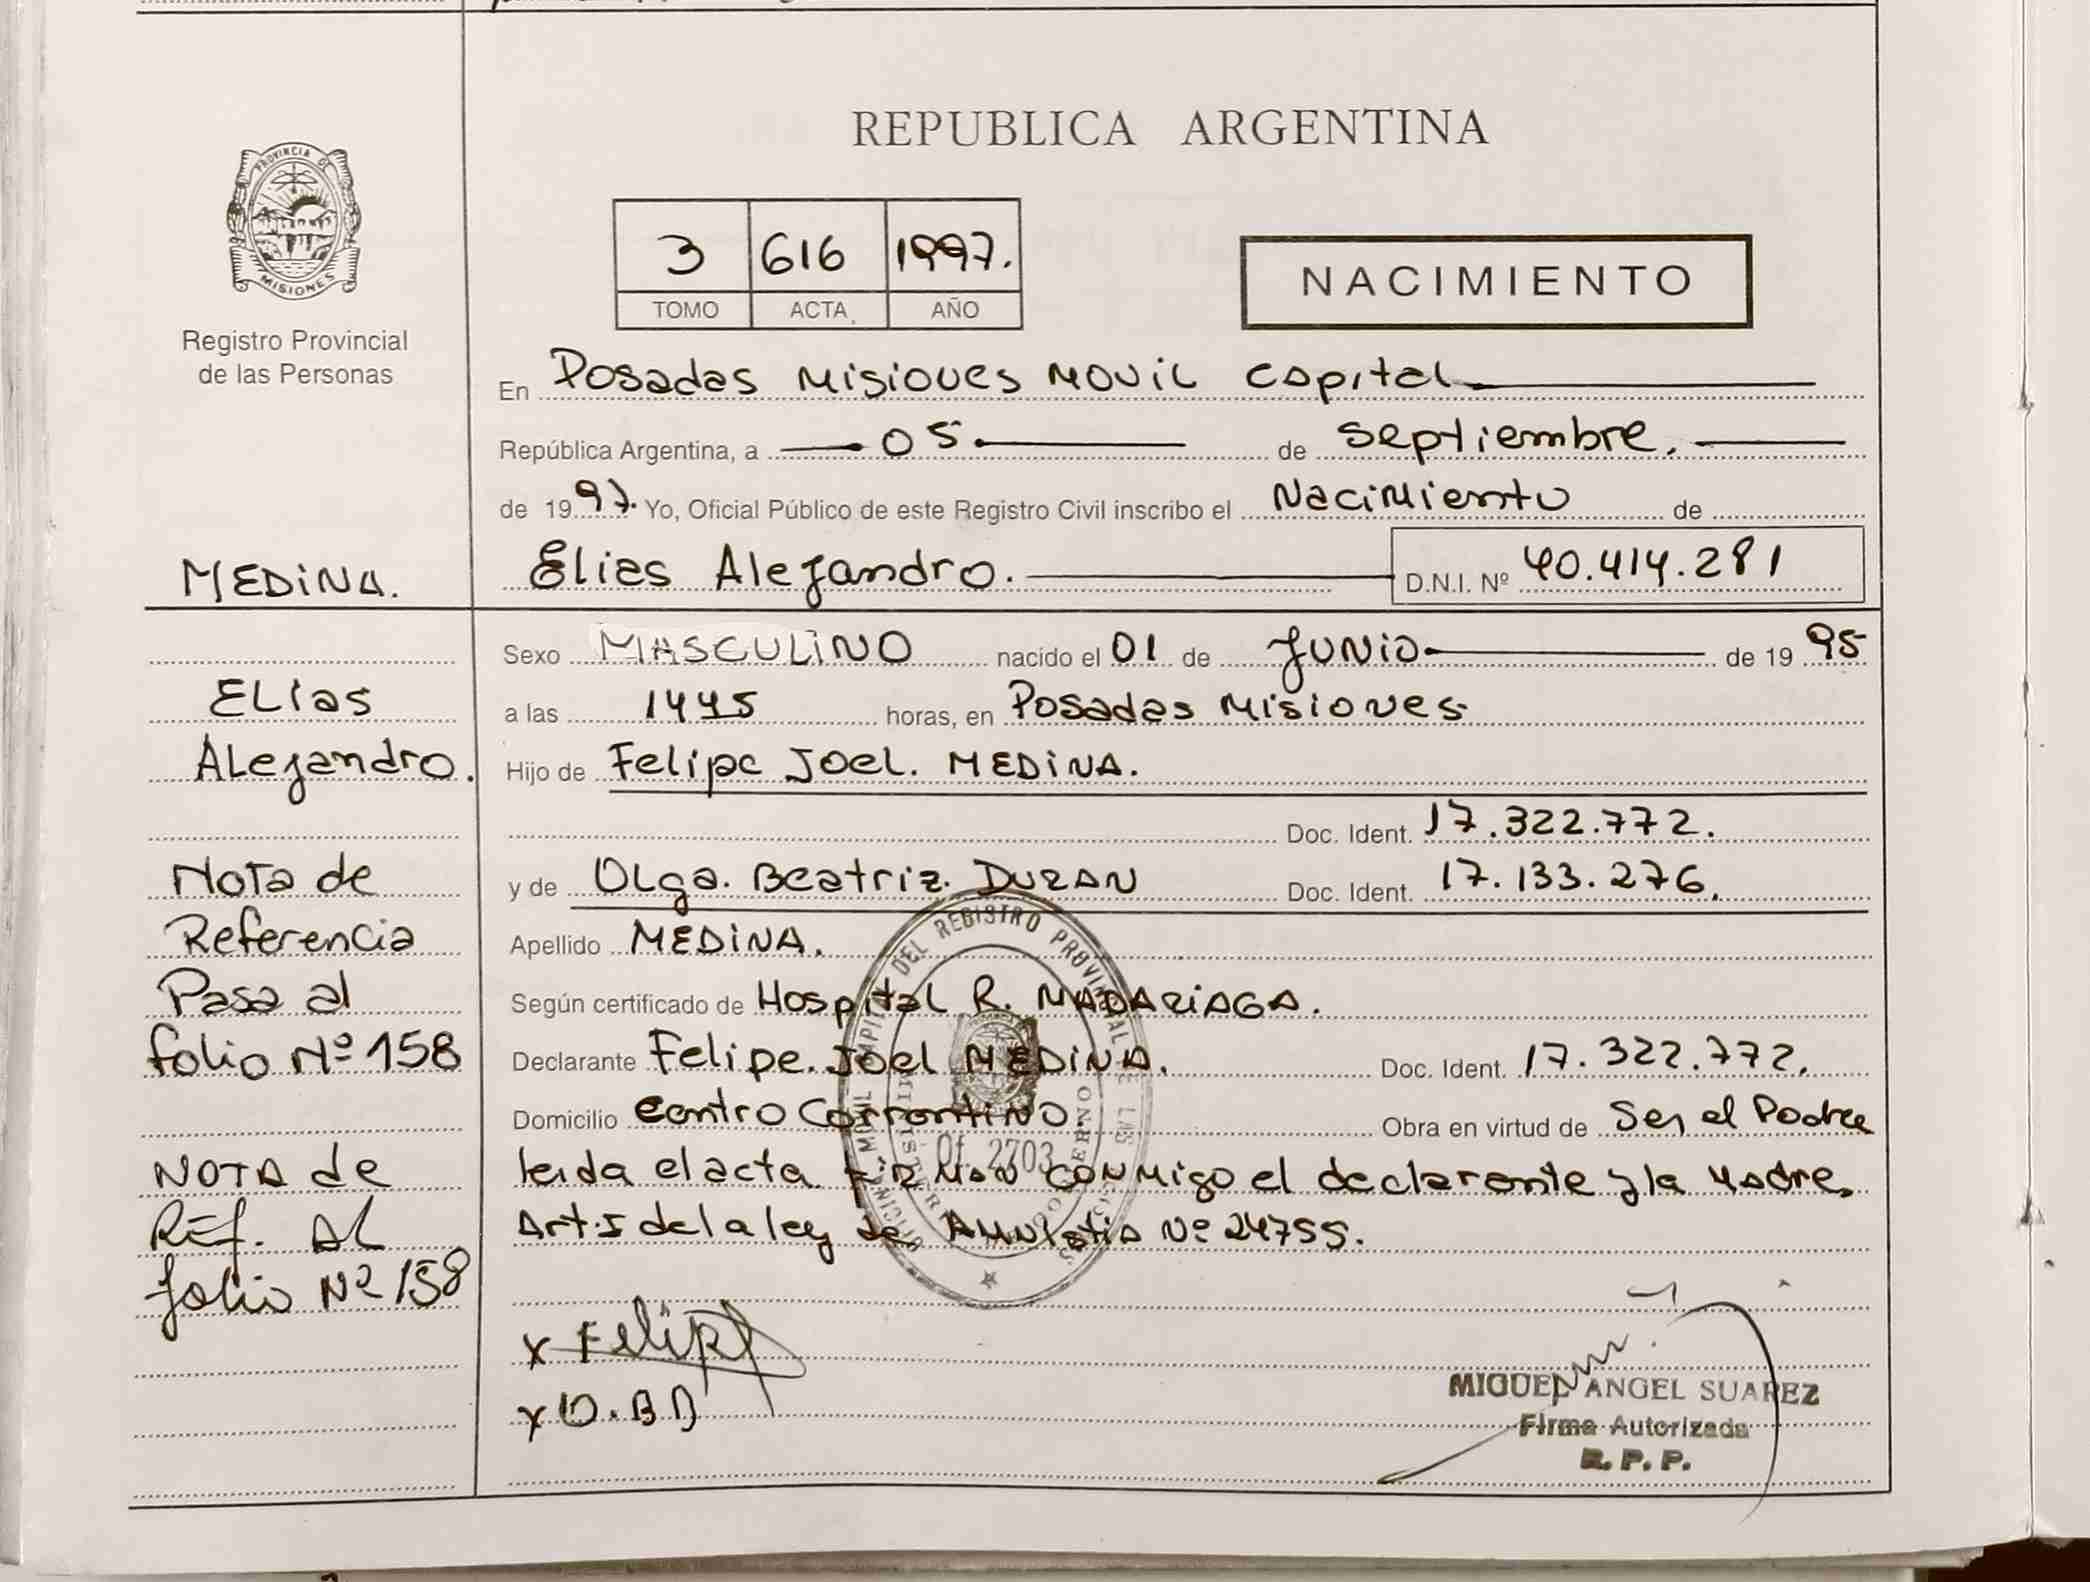 REPUBLICA ARGENTINA
PROVINCIA DE
MISIONES
Registro Provincial
de las Personas
3 616 1997.
TOMO ACTA AÑO
NACIMIENTO
En Posadas Misiones Movil Capital
República Argentina, a 05 de septiembre.
de 1997. Yo, Oficial Público de este Registro Civil inscribo el Nacimiento de
MEDINA.
Elias Alejandro. D.N.I. Nº 40.414.281
Sexo MASCULINO nacido el 01 de Junio de 1995
a las 1445 horas, en Posadas Misiones
Hijo de Felipe Joel. MEDINA.
Doc. Ident. 17.322.772.
y de Olga. Beatriz. DURAN Doc. Ident. 17.133.276.
Apellido MEDINA.
Según certificado de Hospital R. MADARIAGA.
Declarante Felipe. Joel MEDINA. Doc. Ident. 17.322.772.
Domicilio Centro Correntino Obra en virtud de Ser el Padre
leida el acta firman conmigo el declarante y la Madre.
Art. 5 de la ley de Amnistia Nº 24755.
ELias
ALejandro.
Nota de
Referencia
Pasa al
folio Nº 158
NOTA de
Ref. AL
folio Nº 158
OFICINA MOVIL CAPITAL DEL REGISTRO PROVINCIAL DE LAS PERSONAS
MINISTERIO DE GOBIERNO
Of. 2703
x Felipe
x O.B.D
MIGUEL ANGEL SUAREZ
Firma Autorizada
R. P. P.